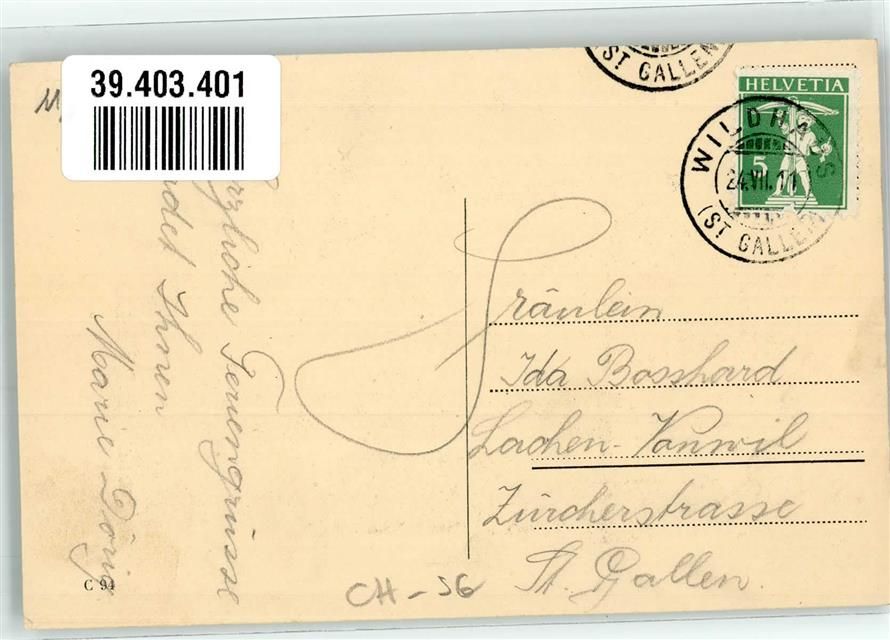 39.403.401
ST GALLEN
HELVETIA
5
WILDHAUS
24.VII.11
(ST GALLEN)
Ferengrüsse
Ihnen
Marie Dörig
Fräulein
Ida Bosshard
Lachen-Vonwil
Zürcherstrasse
St. Gallen.
C 94
CH-SG